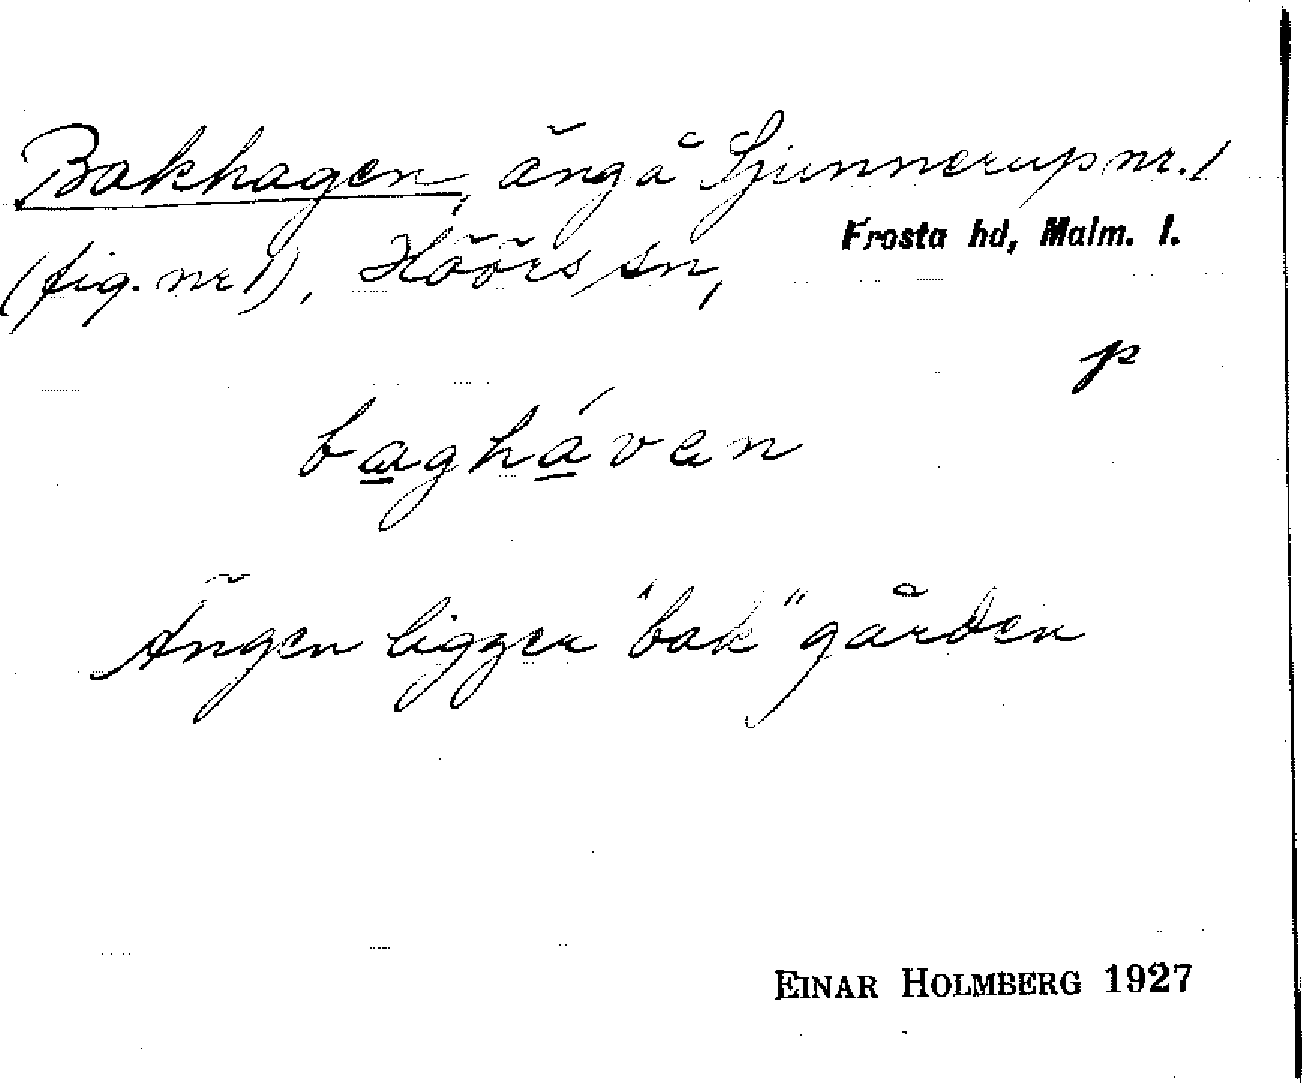 Bakhagen, äng å Sjunnerup nr. 1
Frosta hd, Malm. l.
(fig. nr 1), Höörs sn,
p
baghávan
Ängen ligger "bak" gården
EINAR HOLMBERG 1927